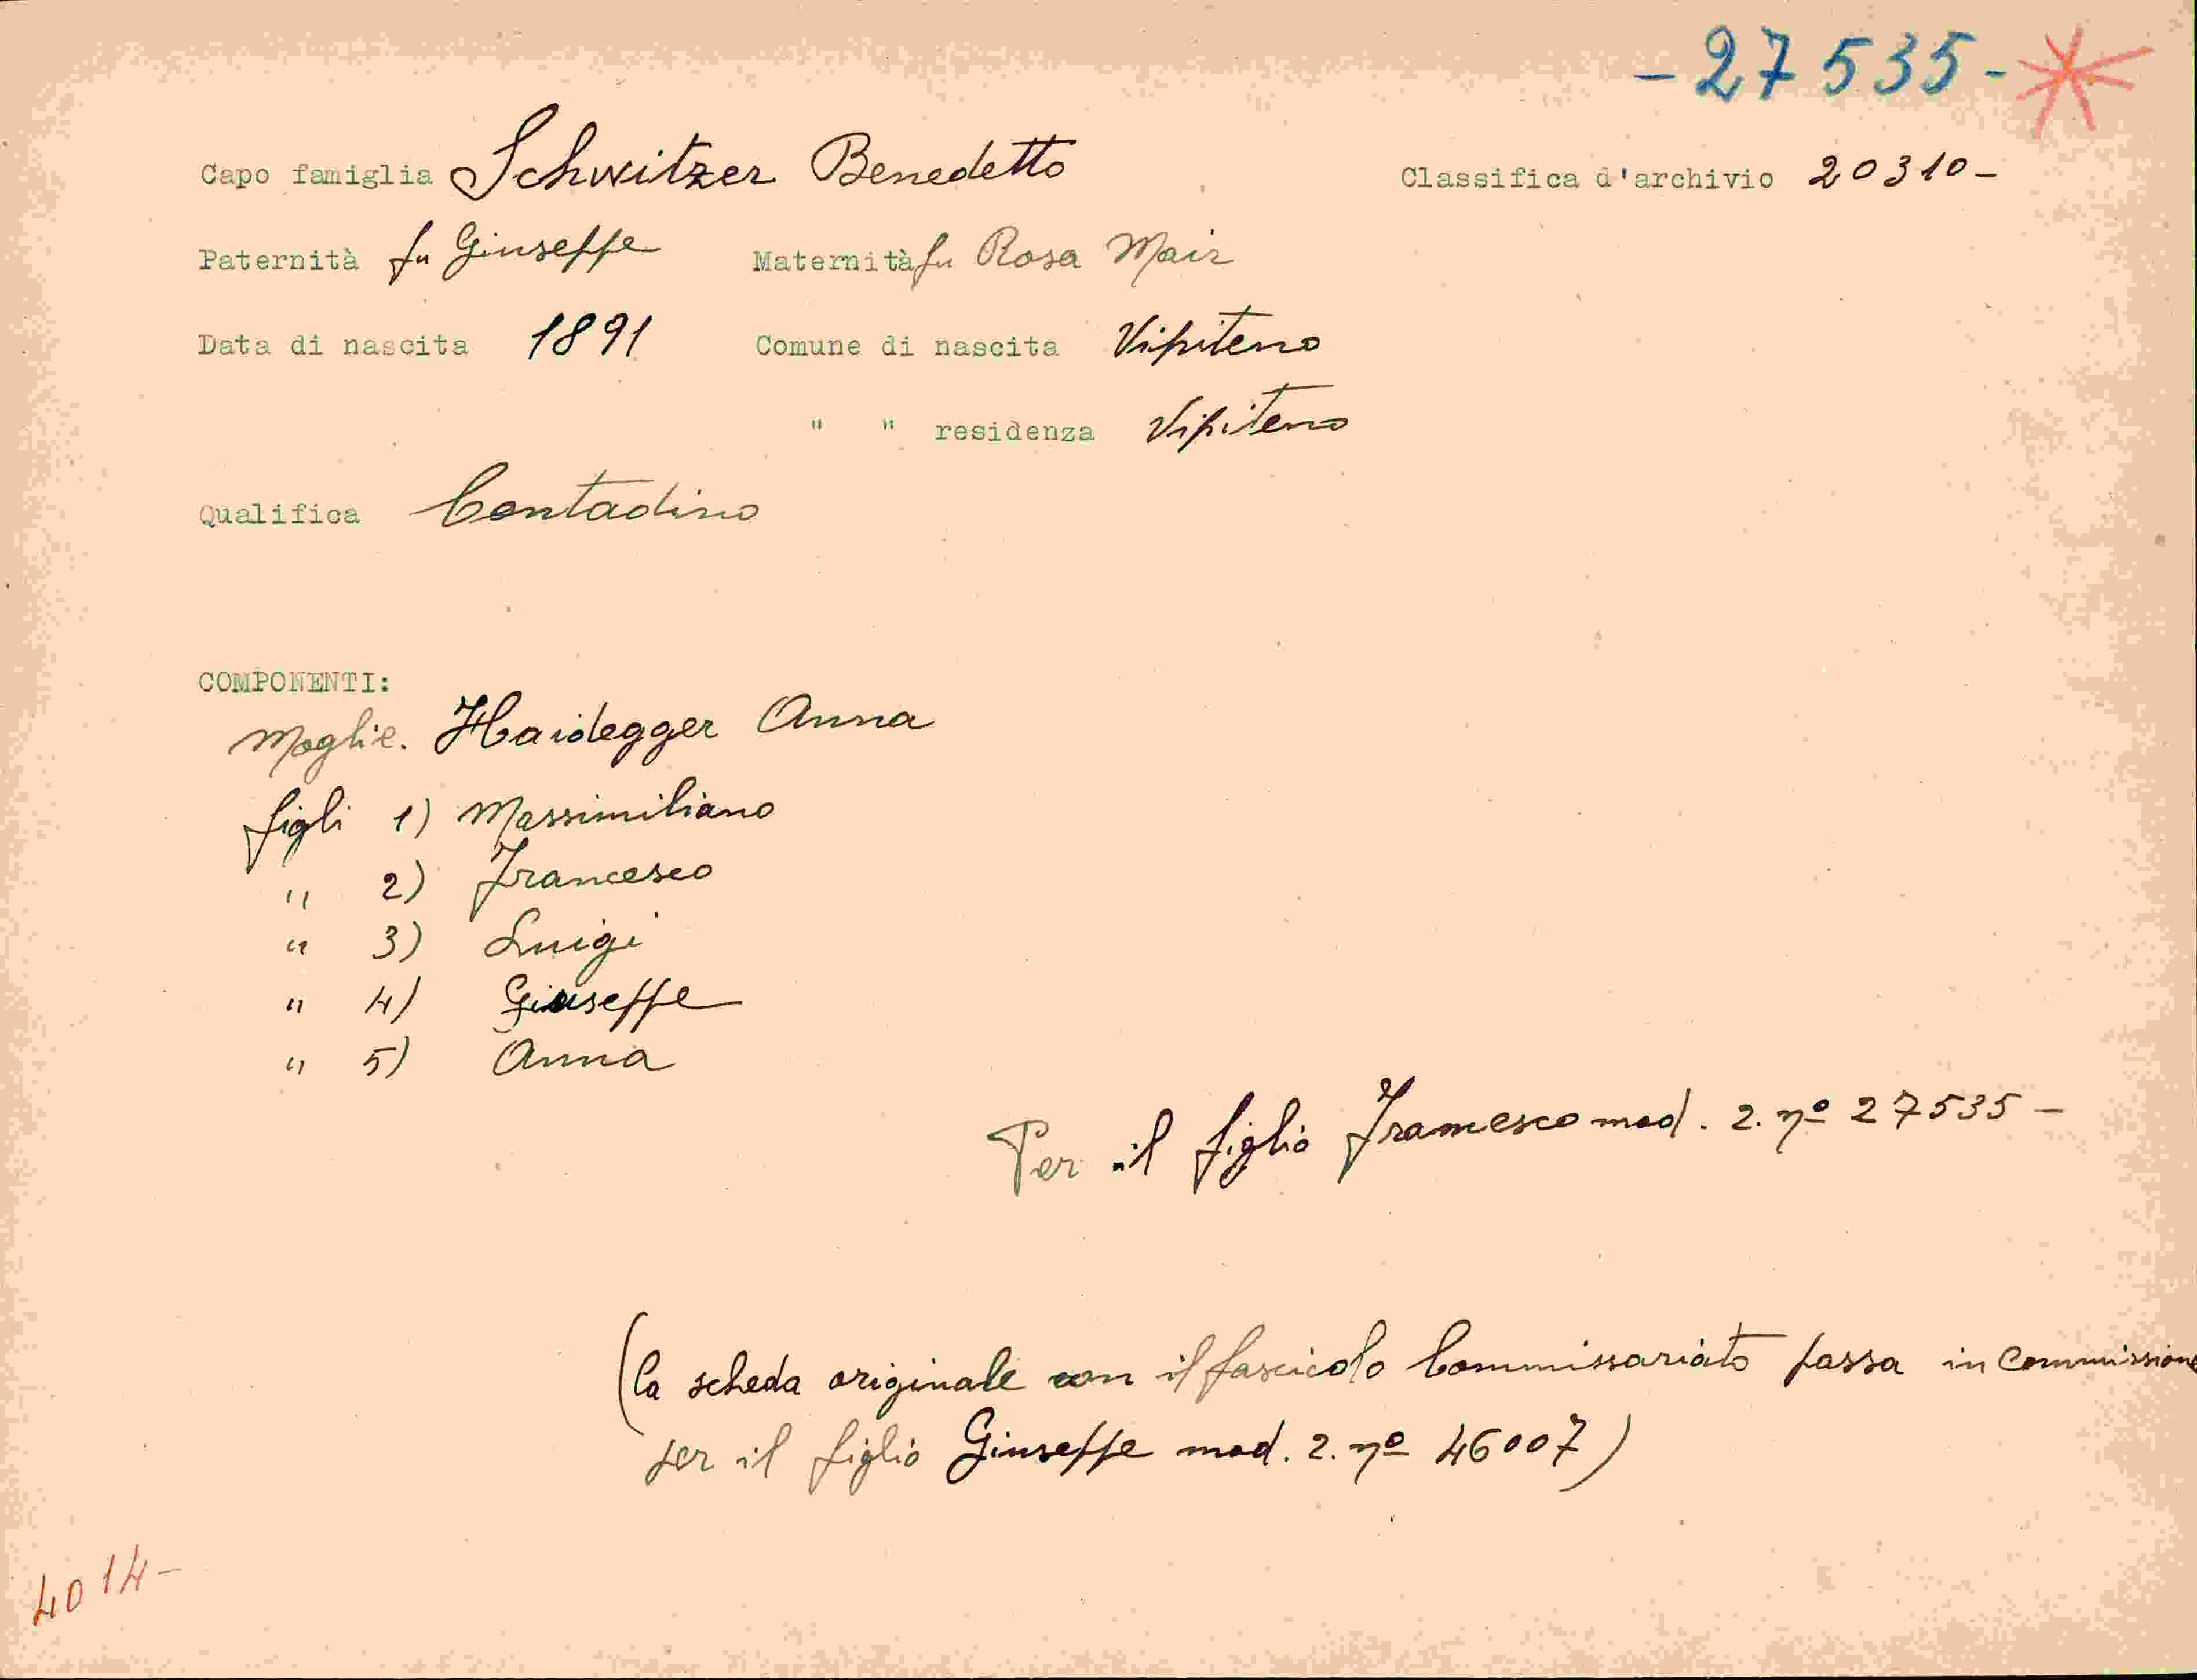 -27535-
Capo famiglia Schwitzer Benedetto Classifica d'archivio 20310-
Paternità fu Giuseppe Maternità fu Rosa Mair
Data di nascita 1891 Comune di nascita Vipiteno
" " residenza Vipiteno
Qualifica Contadino
COMPONENTI:
Moglie. Haidegger Anna
figli 1) Massimiliano
" 2) Francesco
" 3) Luigi
" 4) Giuseppe
" 5) Anna
Per il figlio Francesco mod. 2. nº 27535-
(la scheda originale con il fascicolo Commissariato passa in Commissione
per il figlio Giuseppe mod. 2. nº 46007)
4014-